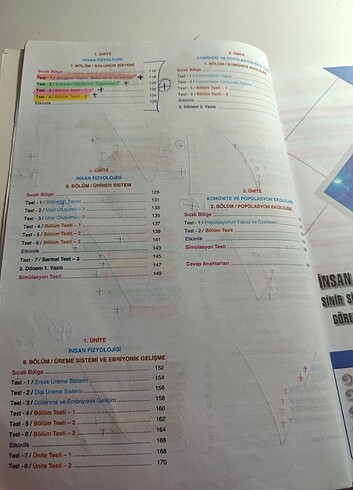 1. ÜNİTE
İNSAN FİZYOLOJİSİ
7. BÖLÜM / SOLUNUM SİSTEMİ
Sıcak Bölge
Test - 1 /
Test - 2 /
Test - 3 / Bölüm Testi - 1
Test - 4 / Bölüm Testi - 2
Etkinlik
1. ÜNİTE
İNSAN FİZYOLOJİSİ
8. BÖLÜM / ÜRİNER SİSTEM
Sıcak Bölge 129
Test - 1 / Yapısı 131
Test - 2 / İdrar Oluşumu - 133
Test - 3 / İdrar Oluşumu - 135
Test - 4 / Bölüm Testi - 1 137
Test - 5 / Bölüm Testi - 2 139
Test - 6 / Bölüm Testi - 3 141
Etkinlik 143
Test - 7 / Sarmal Test - 3 145
2. Dönem 1. Yazılı 147
Simülasyon Testi 149
1. ÜNİTE
İNSAN FİZYOLOJİSİ
9. BÖLÜM / ÜREME SİSTEMİ VE EBRİYONİK GELİŞME
Sıcak Bölge 152
Test - 1 / Erkek Üreme Sistemi 154
Test - 2 / Dişi Üreme Sistemi 156
Test - 3 / Döllenme ve Embriyonik Gelişim 158
Test - 4 / Bölüm Testi - 1 160
Test - 5 / Bölüm Testi - 2 162
Test - 6 / Bölüm Testi - 3 164
Etkinlik 166
Test - 7 / Ünite Testi - 1 168
Test - 8 / Ünite Testi - 2 170
2. ÜNİTE
KOMÜNİTE VE POPÜLASYON
1. BÖLÜM / KOMÜNİTE EKOLOJİSİ
Sıcak Bölge
Test - 1 / Komünitenin Yapısı
Test - 2 /
Test - 3 / Bölüm Testi - 1
Test - 4 / Bölüm Testi - 2
Etkinlik
2. Dönem 2. Yazılı
2. ÜNİTE
KOMÜNİTE VE POPÜLASYON EKOLOJİSİ
2. BÖLÜM / POPÜLASYON EKOLOJİSİ
Sıcak Bölge
Test - 1 / Popülasyonun Yapısı ve Özellikleri
Test - 2 / Bölüm Testi
Etkinlik
Simülasyon Testi
Cevap Anahtarları
İNSAN
SİNİR Sİ
GÖRE